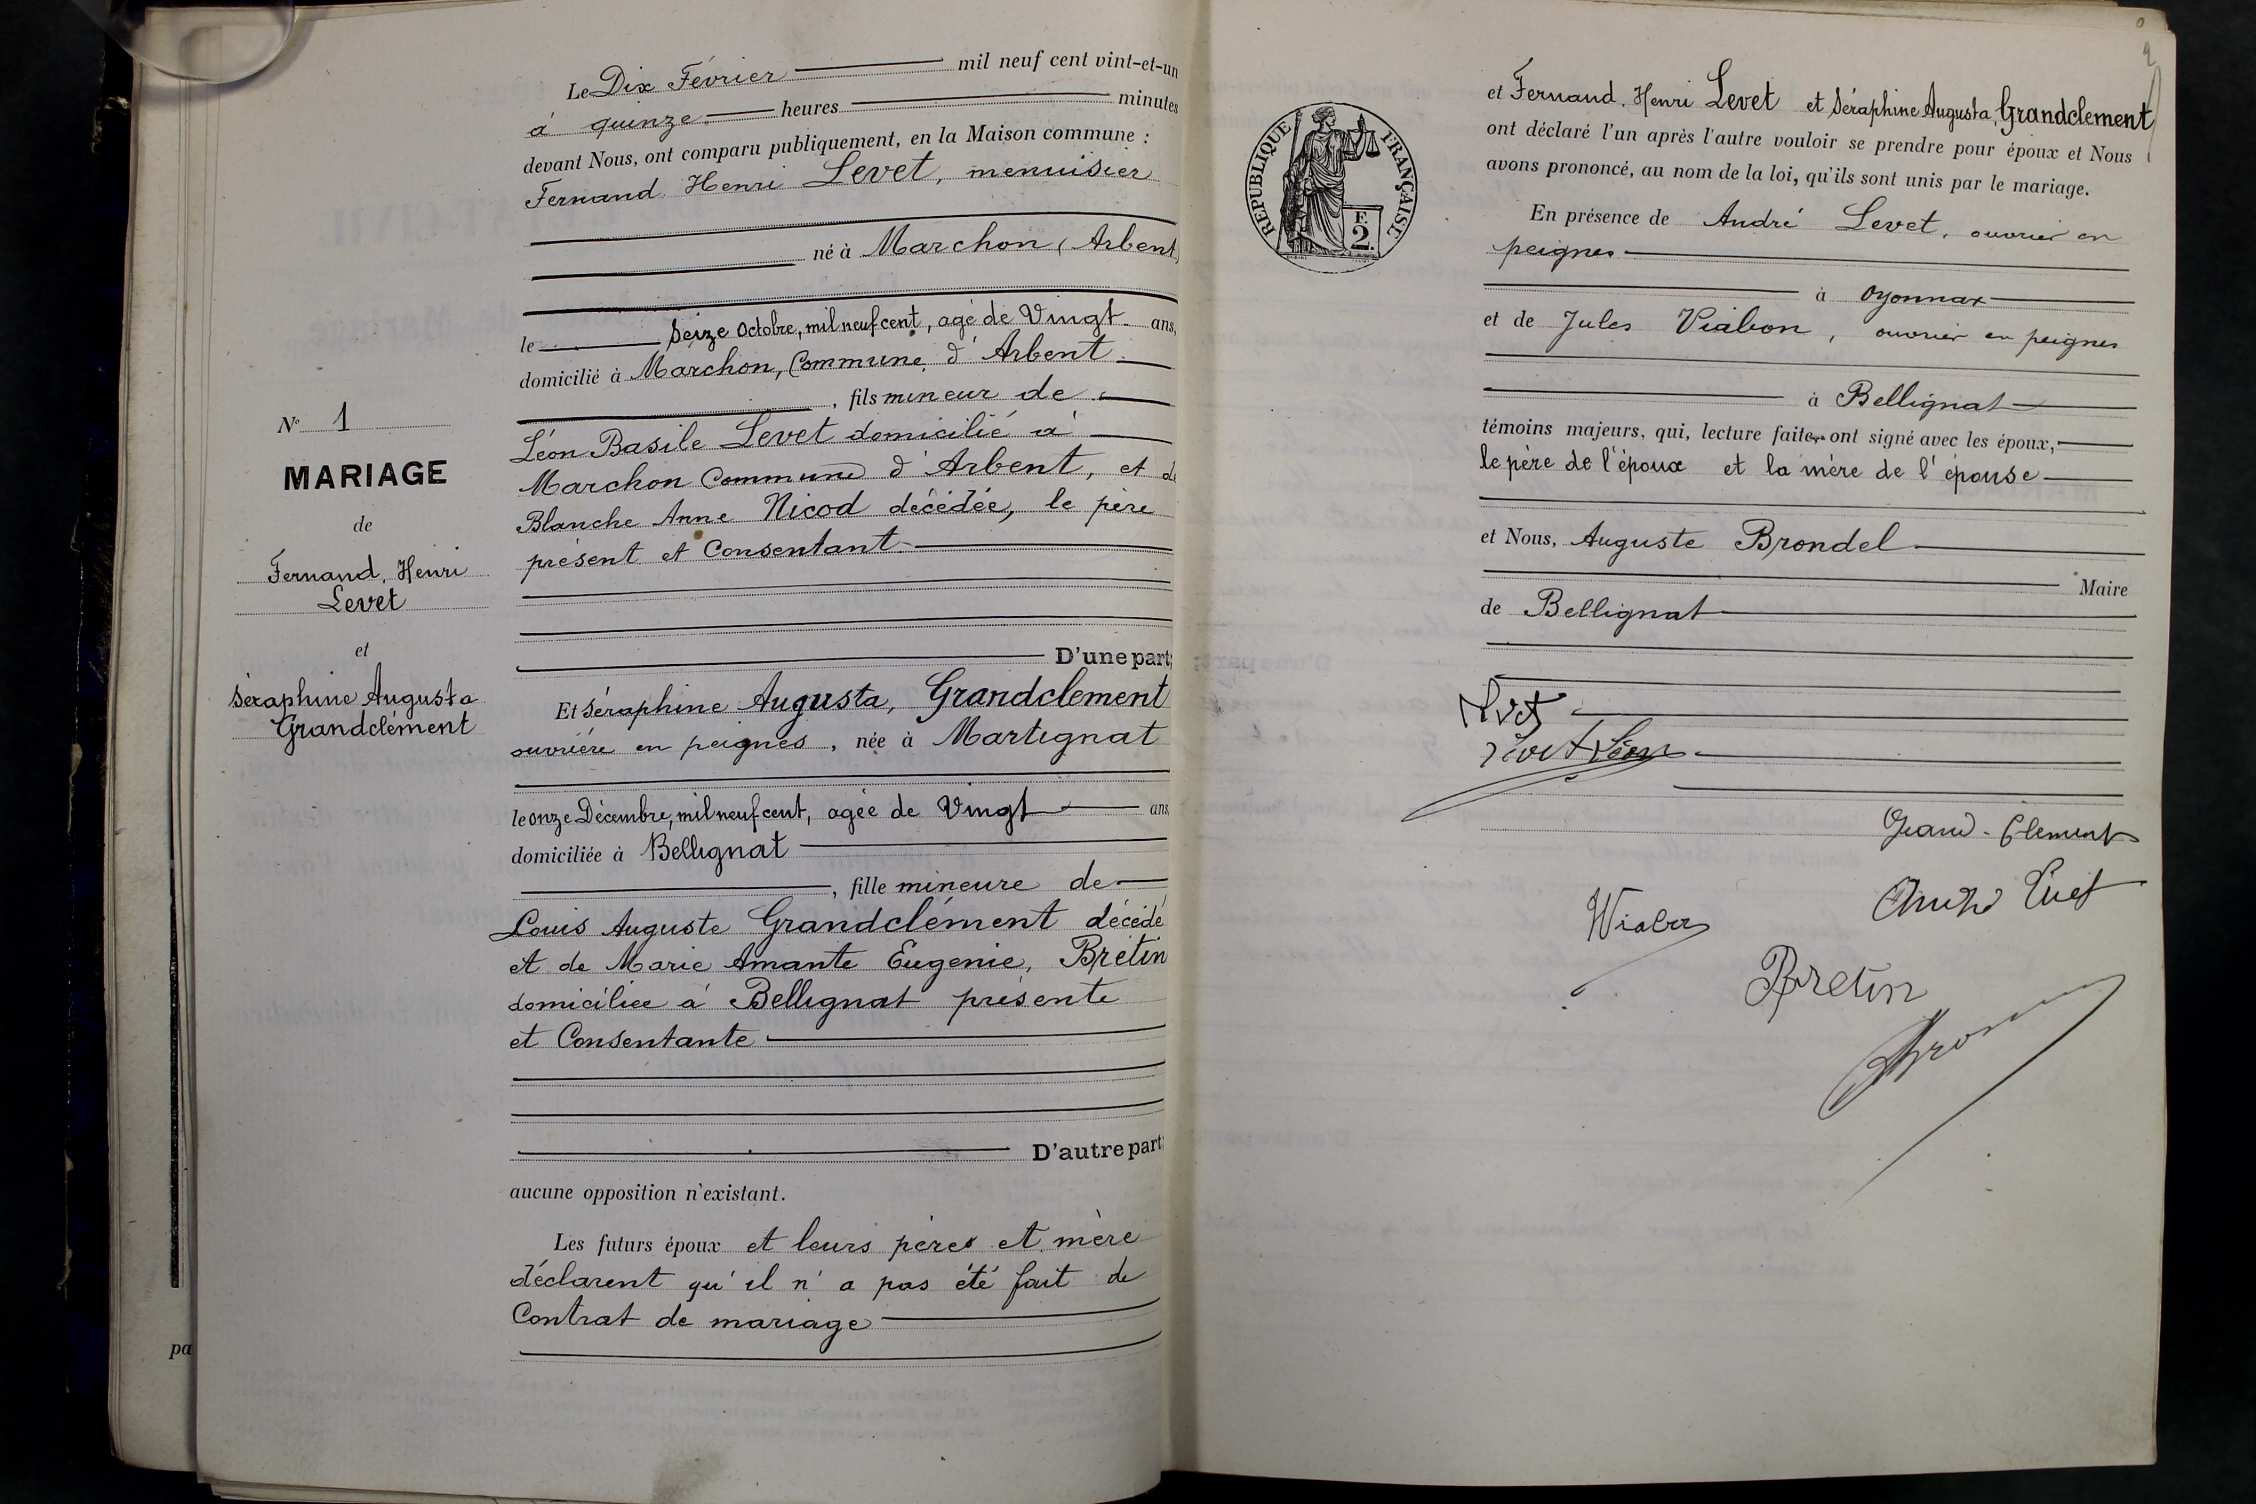 N° 1
MARIAGE
de
Fernand, Henri
Levet
et
Séraphine Augusta
Grandclément
pa
Le Dix Février mil neuf cent vint-et-un
à quinze heures minutes
devant Nous, ont comparu publiquement, en la Maison commune :
Fernand Henri Levet, menuisier
né à Marchon (Arbent)
le Seize Octobre, mil neuf cent, agé de Vingt ans,
domicilié à Marchon, Commune d'Arbent
, fils mineur de
Léon Basile Levet domicilié à
Marchon Commune d'Arbent, et de
Blanche Anne Nicod décédée, le père
présent et Consentant
D'une part;
Et Séraphine Augusta, Grandclement
ouvrière en peignes, née à Martignat
le onze Décembre, mil neuf cent, agée de Vingt ans,
domiciliée à Bellignat
, fille mineure de
Louis Auguste Grandclément décédé
et de Marie Amante Eugenie, Brétin
domiciliée à Bellignat présente
et Consentante
D'autre part;
aucune opposition n'existant.
Les futurs époux et leurs pères et mère
déclarent qu'il n'a pas été fait de
Contrat de mariage
2
RÉPUBLIQUE FRANÇAISE
F.
2.
et Fernand, Henri Levet et Séraphine Augusta, Grandclement
ont déclaré l'un après l'autre vouloir se prendre pour époux et Nous
avons prononcé, au nom de la loi, qu'ils sont unis par le mariage.
En présence de André Levet, ouvrier en
peignes
à Oyonnax
et de Jules Viabon, ouvrier en peignes
à Bellignat
témoins majeurs, qui, lecture faite, ont signé avec les époux,
le père de l'époux et la mère de l'épouse
et Nous, Auguste Brondel
Maire
de Bellignat
Levet
Levet Léon
Grand-Clement
André Levet
Bretin